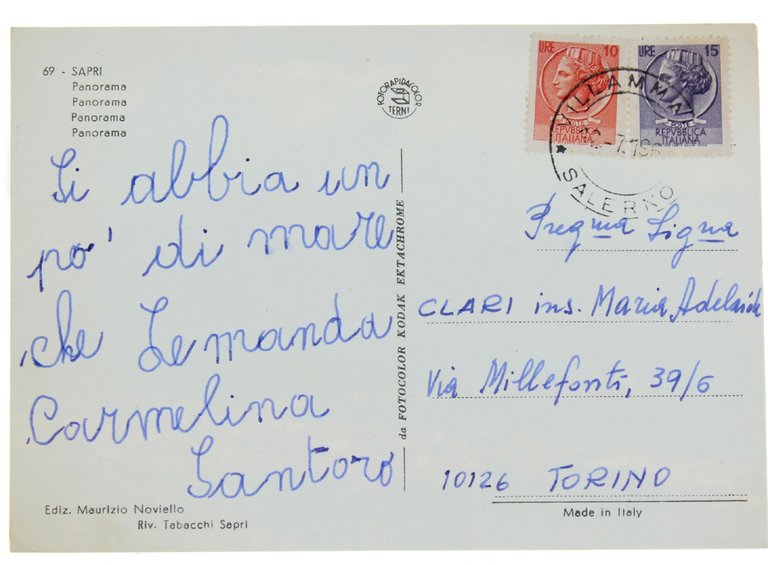 69 - SAPRI
Panorama
Panorama
Panorama
Panorama
FOTORAPIDACOLOR
TERNI
LIRE 10
POSTE
REPVBBLICA
ITALIANA
LIRE 15
POSTE
REPVBBLICA
ITALIANA
VILLAMMA
-7.196
SALERNO
Si abbia un
po' di mare
che Le manda
Carmelina
Santoro
da FOTOCOLOR KODAK EKTACHROME
Preg.ma Sig.na
CLARI ins. Maria Adelaide
Via Millefonti, 39/6
10126 TORINO
Ediz. Maurizio Noviello
Riv. Tabacchi Sapri
Made in Italy